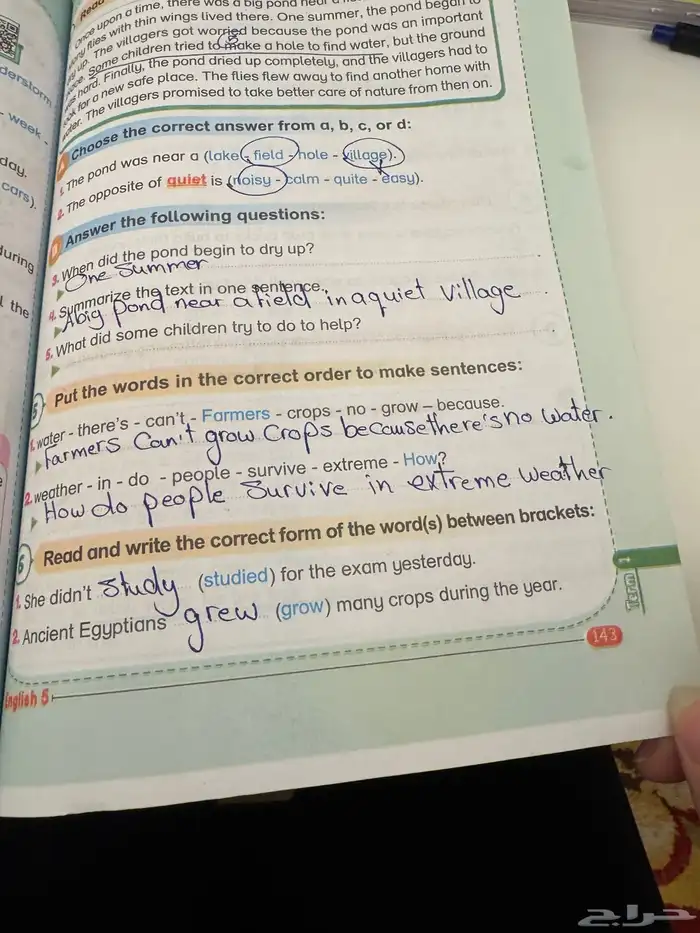 Read
Once upon a time, there was a big pond near a
many flies with thin wings lived there. One summer, the pond began to
up. The villagers got worried because the pond was an important
Some children tried to make a hole to find water, but the ground
was hard. Finally, the pond dried up completely, and the villagers had to
look for a new safe place. The flies flew away to find another home with
water. The villagers promised to take better care of nature from then on.
A Choose the correct answer from a, b, c, or d:
1. The pond was near a (lake - field - hole - village).
2. The opposite of quiet is (noisy - calm - quite - easy).
B Answer the following questions:
3. When did the pond begin to dry up?
One Summer
4. Summarize the text in one sentence.
A big pond near a field in a quiet village
5. What did some children try to do to help?
5 Put the words in the correct order to make sentences:
1. water - there's - can't - Farmers - crops - no - grow – because.
Farmers Can't grow Crops because there's no water.
2. weather - in - do - people - survive - extreme - How?
How do people Survive in extreme weather
6 Read and write the correct form of the word(s) between brackets:
1. She didn't study (studied) for the exam yesterday.
2. Ancient Egyptians grew (grow) many crops during the year.
Term 1
143
English 5
derstorm
week.
day.
cars).
during
the
حراج